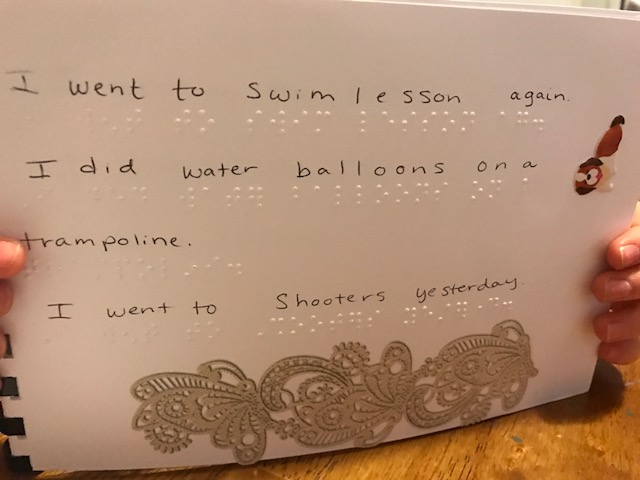 I went to swim lesson again.
I did water balloons on a
trampoline.
I went to Shooters yesterday.